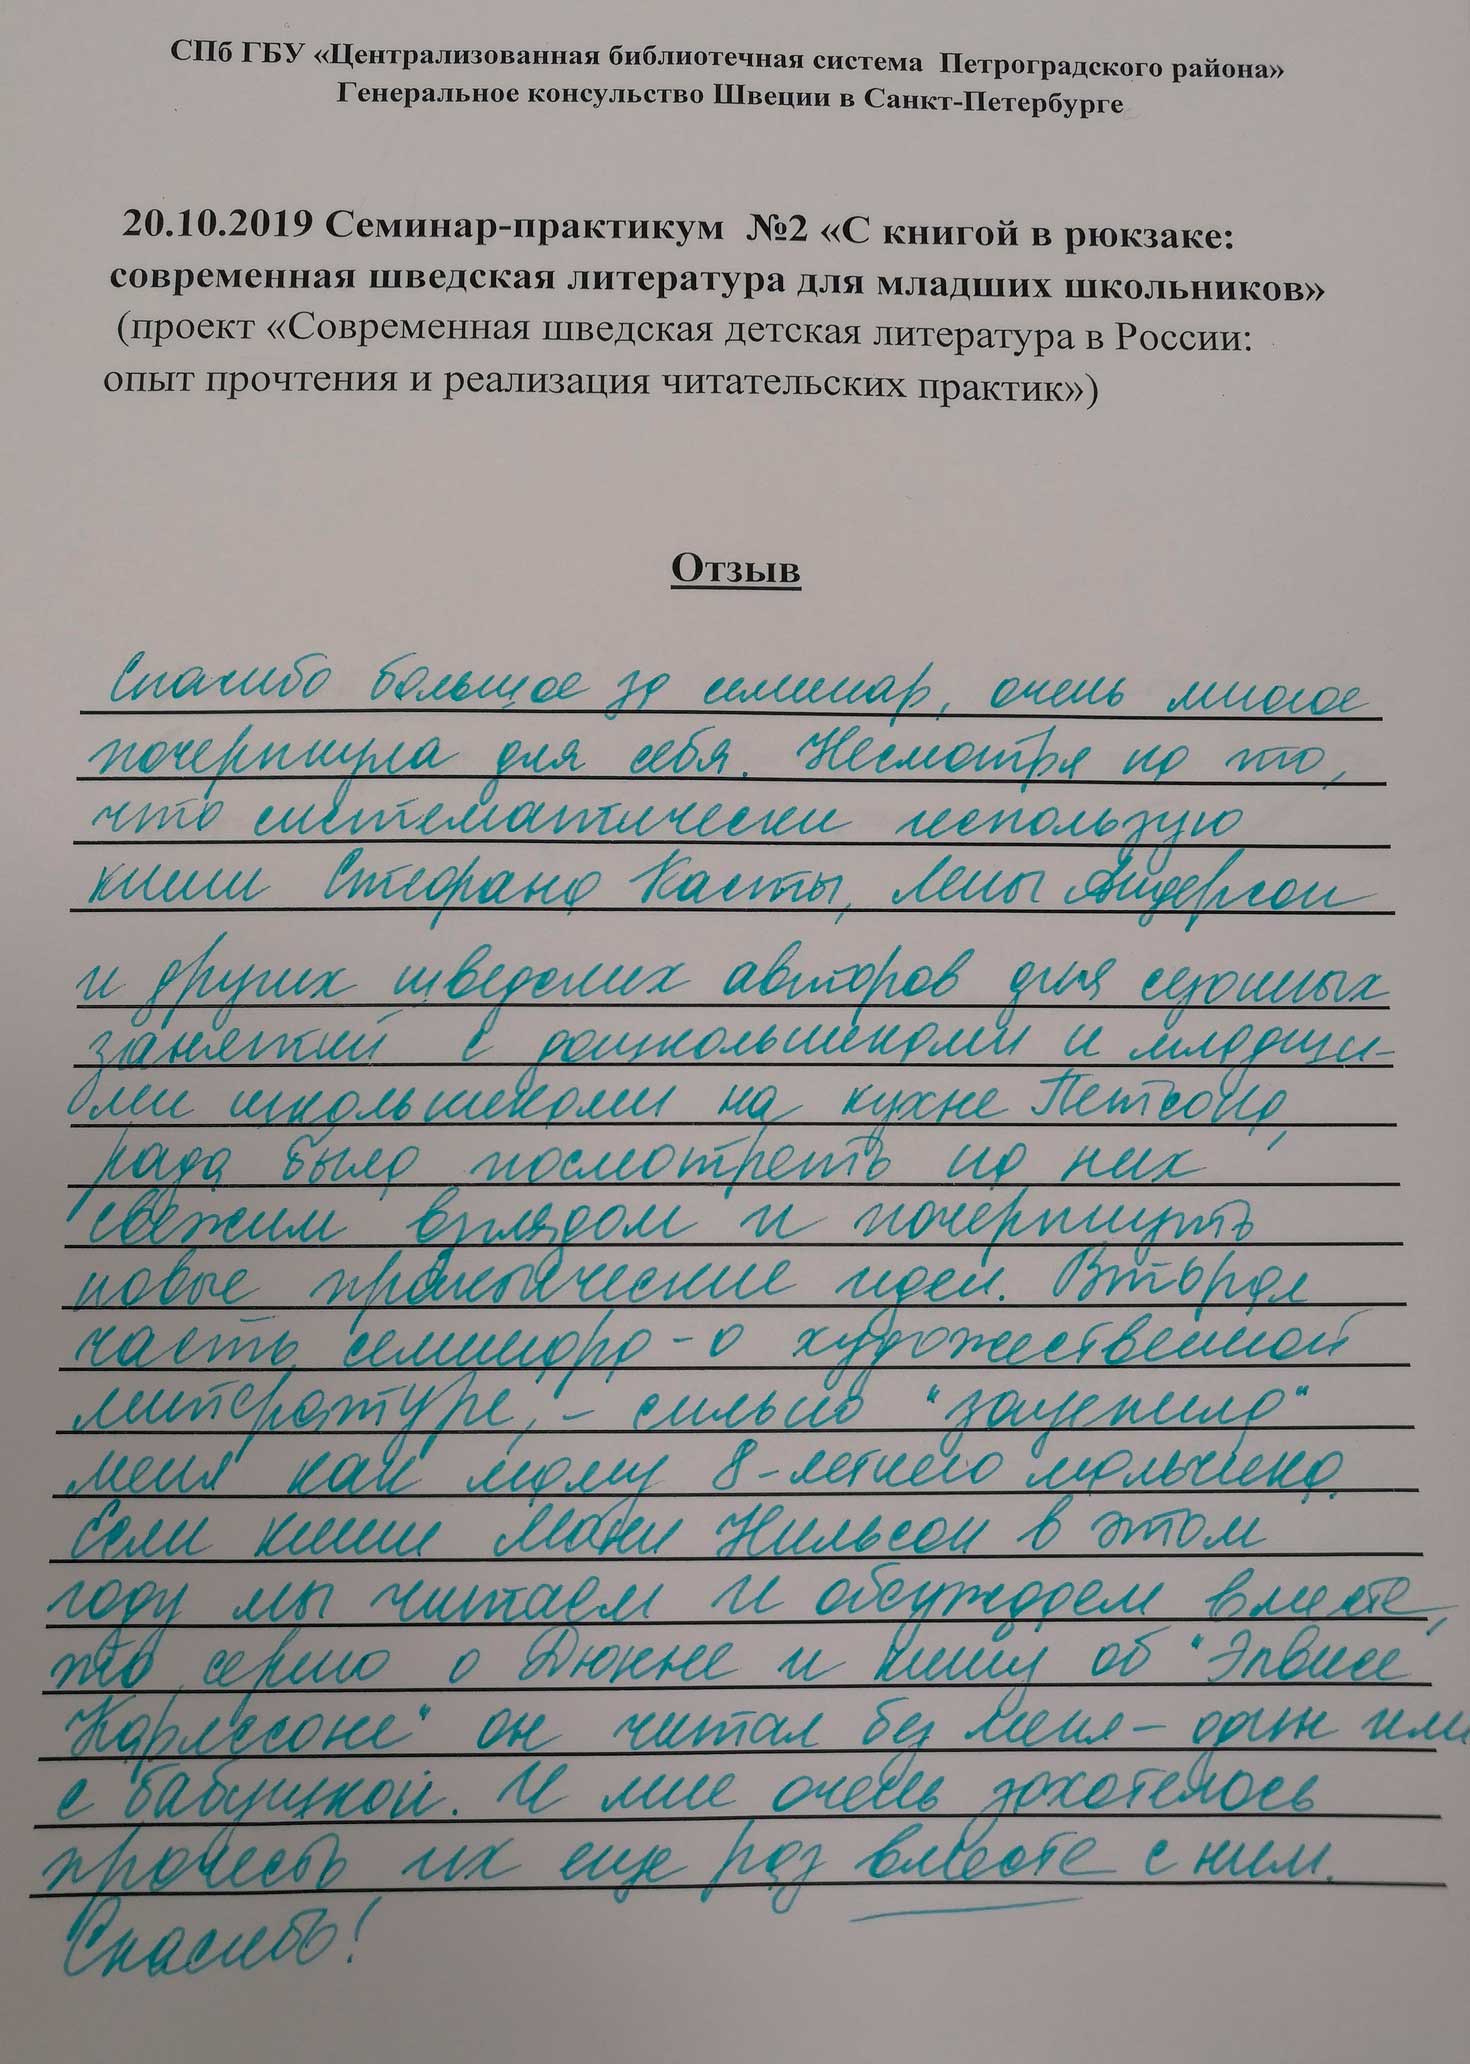 СПб ГБУ «Централизованная библиотечная система Петроградского района»
Генеральное консульство Швеции в Санкт-Петербурге
20.10.2019 Семинар-практикум №2 «С книгой в рюкзаке:
современная шведская литература для младших школьников»
(проект «Современная шведская детская литература в России:
опыт прочтения и реализация читательских практик»)
Отзыв
Спасибо большое за семинар, очень многое
почерпнула для себя. Несмотря на то,
что систематически использую
книги Стефана Касты, Лены Андерсон
и других шведских авторов для сезонных
занятий с дошкольниками и младши-
ми школьниками на кухне Петсона,
рада была посмотреть на них
свежим взглядом и почерпнуть
новые практические идеи. Вторая
часть семинара - о художественной
литературе, - сильно "зацепила"
меня как маму 8-летнего мальчика.
Если книги Мони Нильсон в этом
году мы читаем и обсуждаем вместе,
то серию о Дюнне и книгу об "Элвисе
Карлссоне" он читал без меня - один или
с бабушкой. И мне очень захотелось
прочесть их еще раз вместе с ним.
Спасибо!